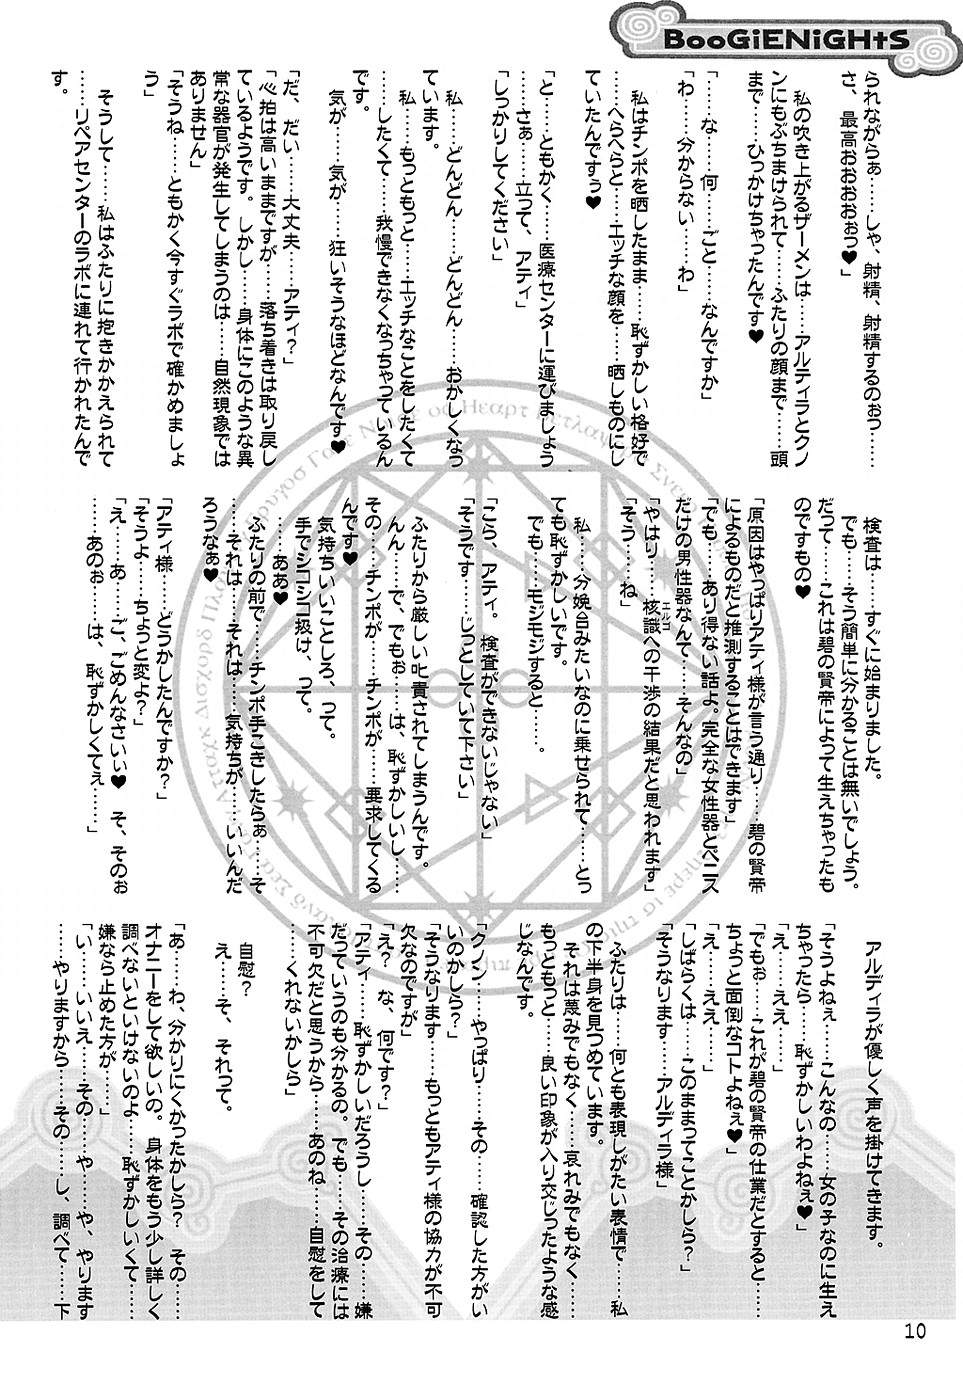 BooGiENiGHtS
られながらぁ……しゃ、射精、射精するのぉっ……
さ、最高おおおおぉっ♥」
　私の吹き上がるザーメンは……アルディラとクノ
ンにもぶちまけられて……ふたりの顔まで……頭
まで……ひっかけちゃったんです♥
「……な……何……ごと……なんですか」
「わ……分からない……わ」
　私はチンポを晒したまま……恥ずかしい格好で
……へらへらと……エッチな顔を……晒しものにし
ていたんですぅ♥
「と……ともかく……医療センターに運びましょう
……さぁ……立って、アティ」
「しっかりしてください」
　私……どんどん……どんどん……おかしくなっ
ています。
　私……もっともっと……エッチなことをしたくて
……したくて……我慢できなくなっちゃっているん
です。
　気が……気が……狂いそうなほどなんです♥
「だ、だい……大丈夫……アティ？」
「心拍は高いままですが……落ち着きは取り戻し
ているようです。しかし……身体にこのような異
常な器官が発生してしまうのは……自然現象では
ありません」
「そうね……ともかく今すぐラボで確かめましょ
う」
　そうして……私はふたりに抱きかかえられて
……リペアセンターのラボに連れて行かれたんで
す。
　検査は……すぐに始まりました。
　でも……そう簡単に分かることは無いでしょう。
だって……これは碧の賢帝によって生えちゃったも
のですもの♥
「原因はやっぱりアティ様が言う通り……碧の賢帝
によるものだと推測することはできます」
「でも……あり得ない話よ。完全な女性器とペニス
だけの男性器なんて……そんなの」
「やはり……核識への干渉の結果だと思われます」
エルゴ
「そう……ね」
　私……分娩台みたいなのに乗せられて……とっ
ても恥ずかしいです。
　でも……モジモジすると……。
「こら、アティ。検査ができないじゃない」
「そうです……じっとしていて下さい」
　ふたりから厳しい叱責されてしまうんです。
　んん……で、でもぉ……は、恥ずかしいし……
その……チンポが……チンポが……要求してくる
んです♥
　気持ちいいことしろ、って。
　手でシコシコ扱け、って。
　……ああ♥
　ふたりの前で……チンポ手こきしたらぁ……そ
……それは……それは……気持ちが……いいんだ
ろうなぁ♥
「アティ様……どうかしたんですか？」
「そうよ……ちょっと変よ？」
「え……あ……ご、ごめんなさいぃ♥　そ、そのぉ
……あのぉ……は、恥ずかしくてぇ……」
　アルディラが優しく声を掛けてきます。
「そうよねぇ……こんなの……女の子なのに生え
ちゃったら……恥ずかしいわよねぇ♥」
「え……ええ……」
「でもぉ……これが碧の賢帝の仕業だとすると……
ちょっと面倒なコトよねぇ♥」
「え……ええ……」
「しばらくは……このままってことかしら？」
「そうなります……アルディラ様」
　ふたりは……何とも表現しがたい表情で……私
の下半身を見つめています。
　それは蔑みでもなく……哀れみでもなく……
もっともっと……良い印象が入り交じったような感
じなんです。
「クノン……やっぱり……その……確認した方がい
いのかしら？」
「そうなります……もっともアティ様の協力が不可
欠なのですが」
「え？　な、何です？」
「アティ……恥ずかしいだろうし……その……嫌
だっていうのも分かるの。でも……その治療には
不可欠だと思うから……あのね……自慰をして
……くれないかしら」
　自慰？
　え……そ、それって。
「あ……わ、分かりにくかったかしら？　その……
オナニーをして欲しいの。身体をもう少し詳しく
調べないといけないのよ……恥ずかしくて……
嫌なら止めた方が……」
「い……いいえ……その……や……や、やります
……やりますから……その……し、調べて……下
10